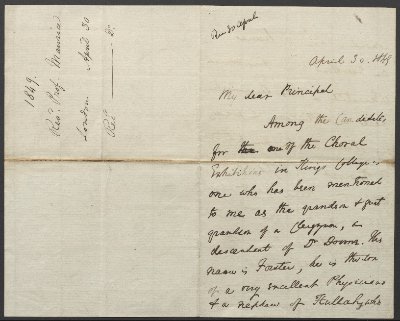 1849.
Revd. Prof. Maurice
London April 30
Recd
April 30. 1849
My dear Principal
Among the Candidates
for one of the Choral
Exhibitions in Kings College is
one who has been mentioned
to me as the grandson & great
grandson of a Clergyman, a
descendent of Dr Donne. His
name is Forster, he is the son
of a very excellent Physician
& a nephew of